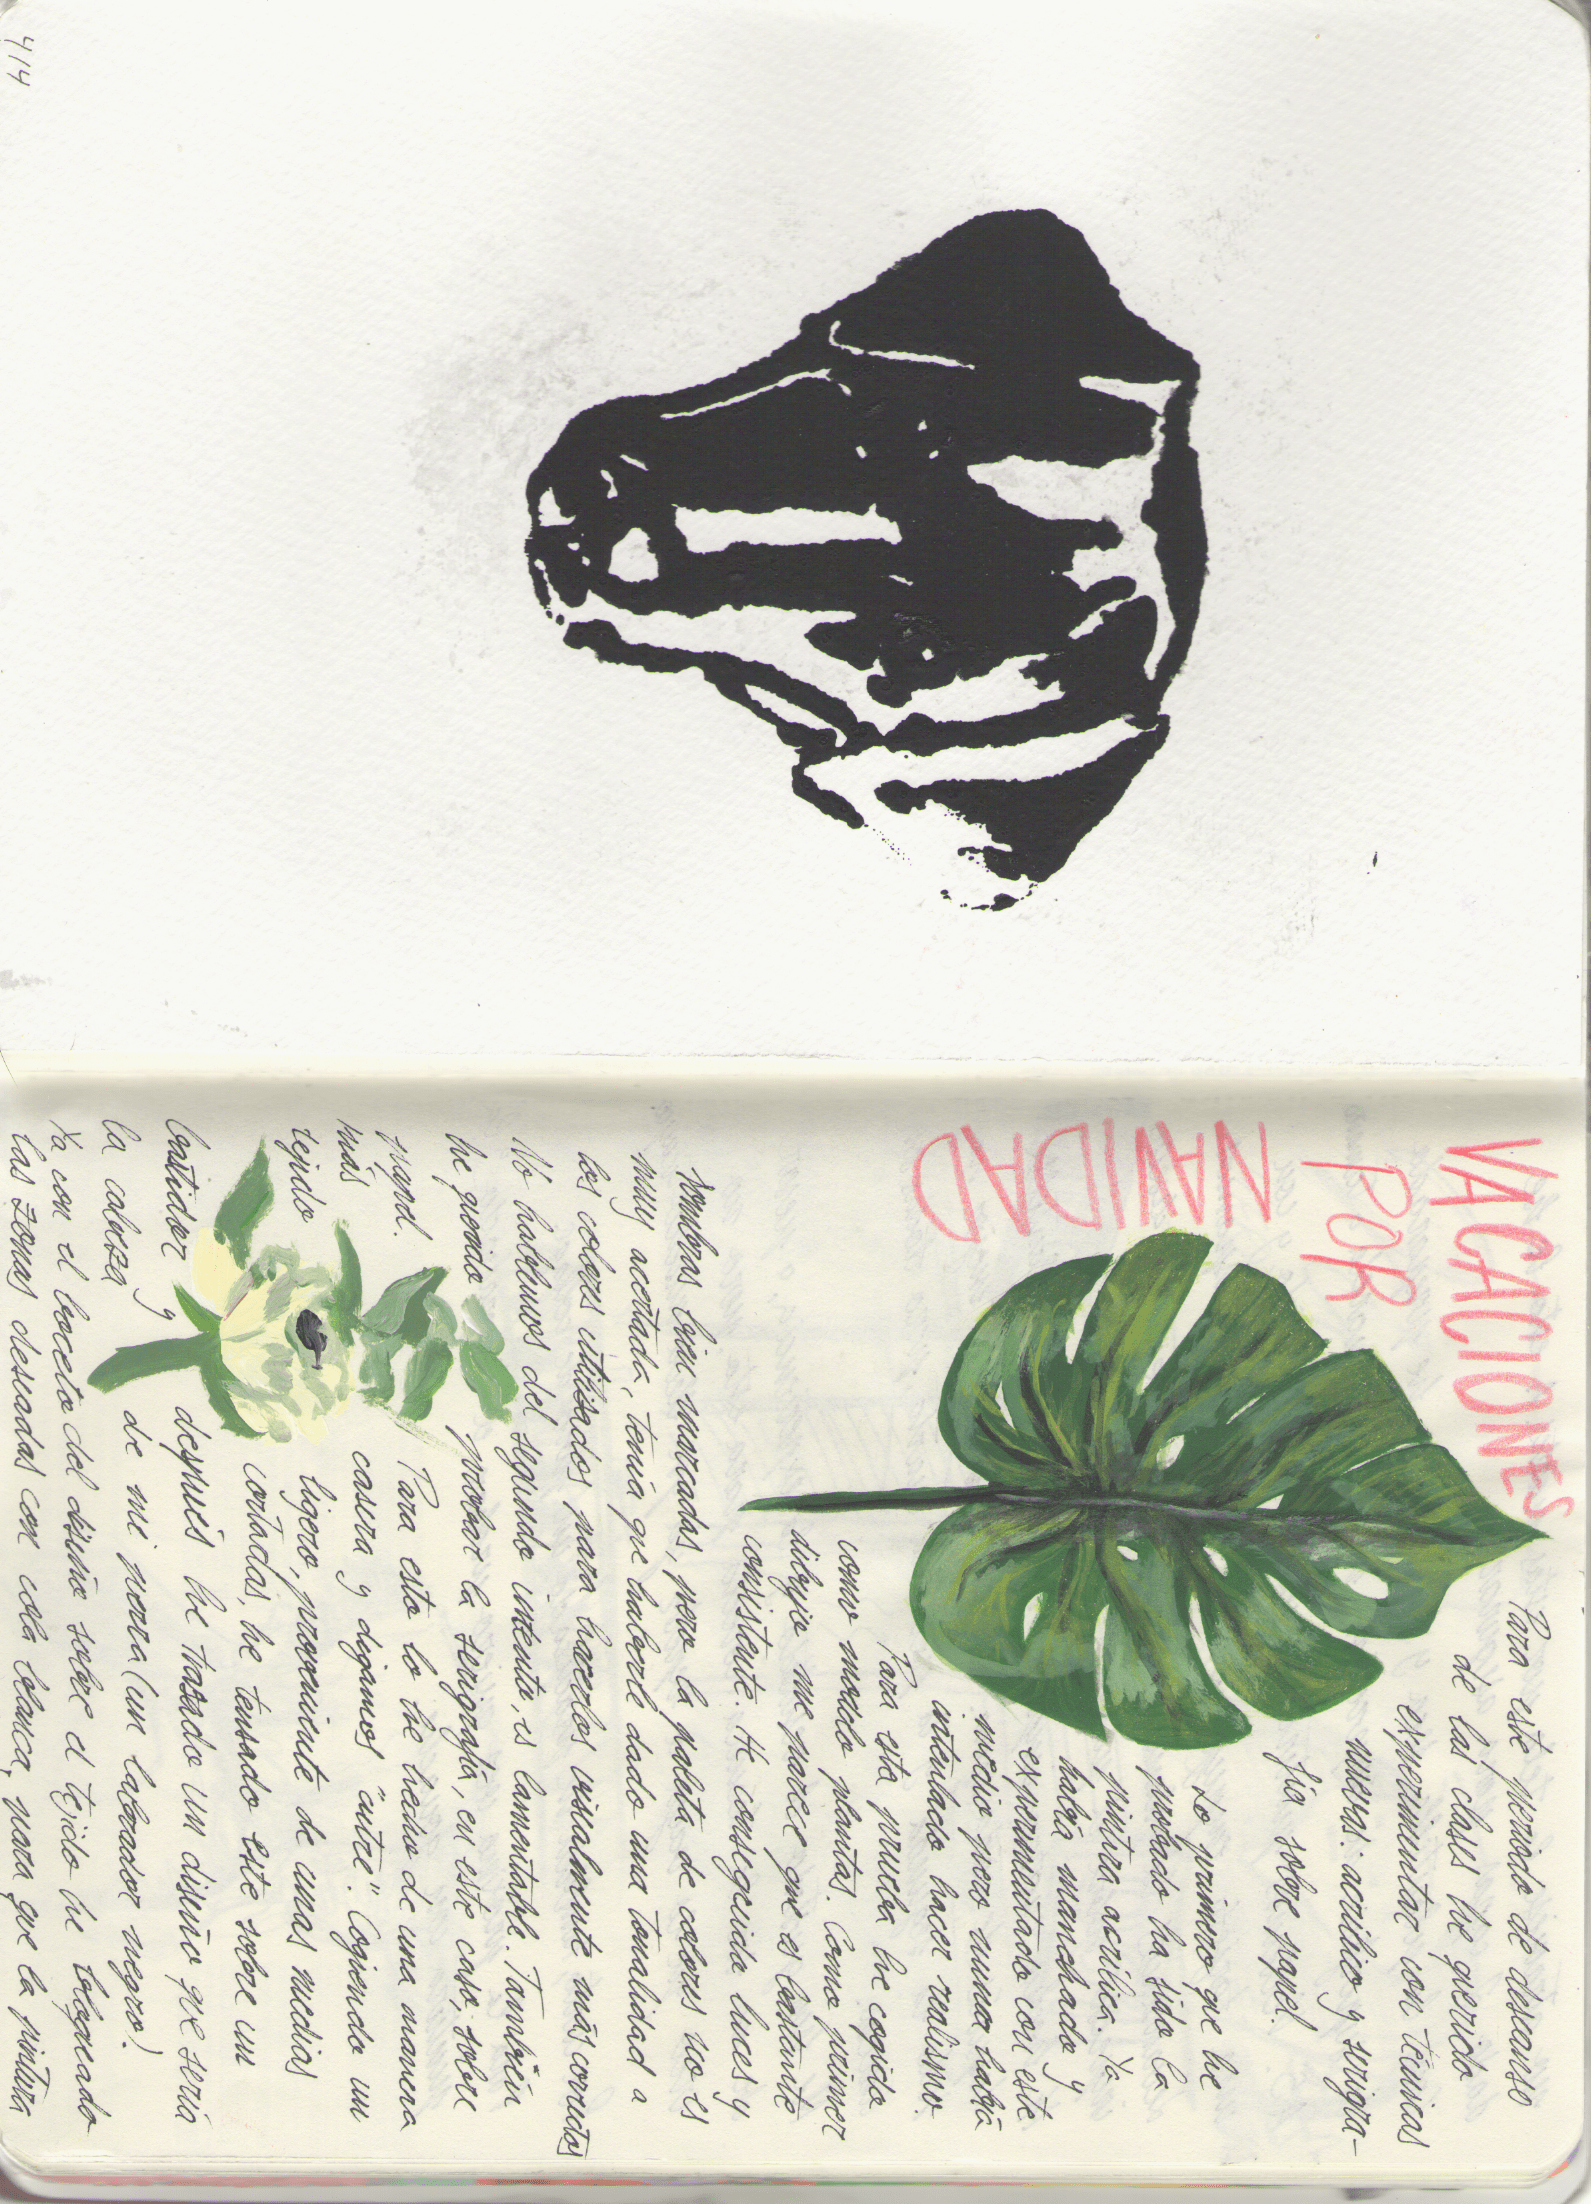 4/4
VACACIONES
POR
NAVIDAD
Para este periodo de descanso
de las clases he querido
experimentar con técnicas
nuevas: acrílico y serigra-
fía sobre papel.
Lo primero que he
probado ha sido la
pintura acrílica. Ya
había manchado y
experimentado con este
medio pero nunca había
intentado hacer realismo.
Para esta prueba he cogido
como modelo plantas. Como primer
dibujo me parece que es bastante
consistente. He conseguido luces y
sombras bien marcadas, pero la paleta de colores no es
muy acertada, tenía que haberle dado una tonalidad a
los colores utilizados para hacerlos visualmente más correctos
No hablemos del segundo intento, es lamentable. También
he querido probar la serigrafía, en este caso, sobre
papel. Para esto lo he hecho de una manera
más casera y digamos "cutre". Cogiendo un
tejido ligero, proveniente de unas medias
cortadas, he tensado este sobre un
bastidor y después he trazado un diseño, que sería
la cabeza de mi perra (un labrador negro).
Ya con el boceto del diseño sobre el tejido he bloqueado
las zonas deseadas con cola blanca, para que la pintura